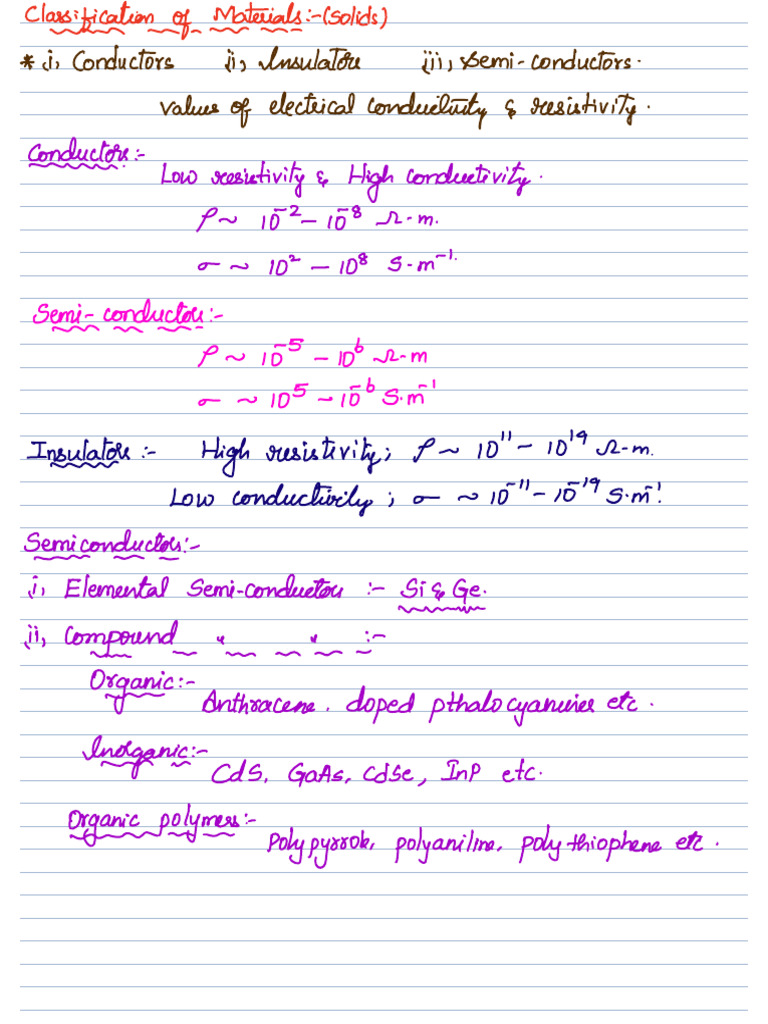 Classification of Materials:-(Solids)
* i, Conductors ii, Insulators iii, Semi-conductors.
Values of electrical conductivity & resistivity.
Conductors:-
Low resistivity & High conductivity.
ρ ~ 10⁻² – 10⁻⁸ Ω-m.
σ ~ 10² – 10⁸ S-m⁻¹.
Semi-conductors:-
ρ ~ 10⁻⁵ – 10⁶ Ω-m
σ ~ 10⁵ ~ 10⁻⁶ S.m⁻¹
Insulators :- High resistivity; ρ ~ 10¹¹ – 10¹⁹ Ω-m.
Low conductivity ; σ ~ 10⁻¹¹ – 10⁻¹⁹ S.m⁻¹.
Semiconductors:-
i, Elemental Semi-conductors :- Si & Ge.
ii, Compound " " :-
Organic:- Anthracene. doped pthalocyanines etc.
Inorganic:- CdS, GaAs, CdSe, InP etc.
Organic polymers:- Polypyrrole, polyaniline, polythiophene etc.